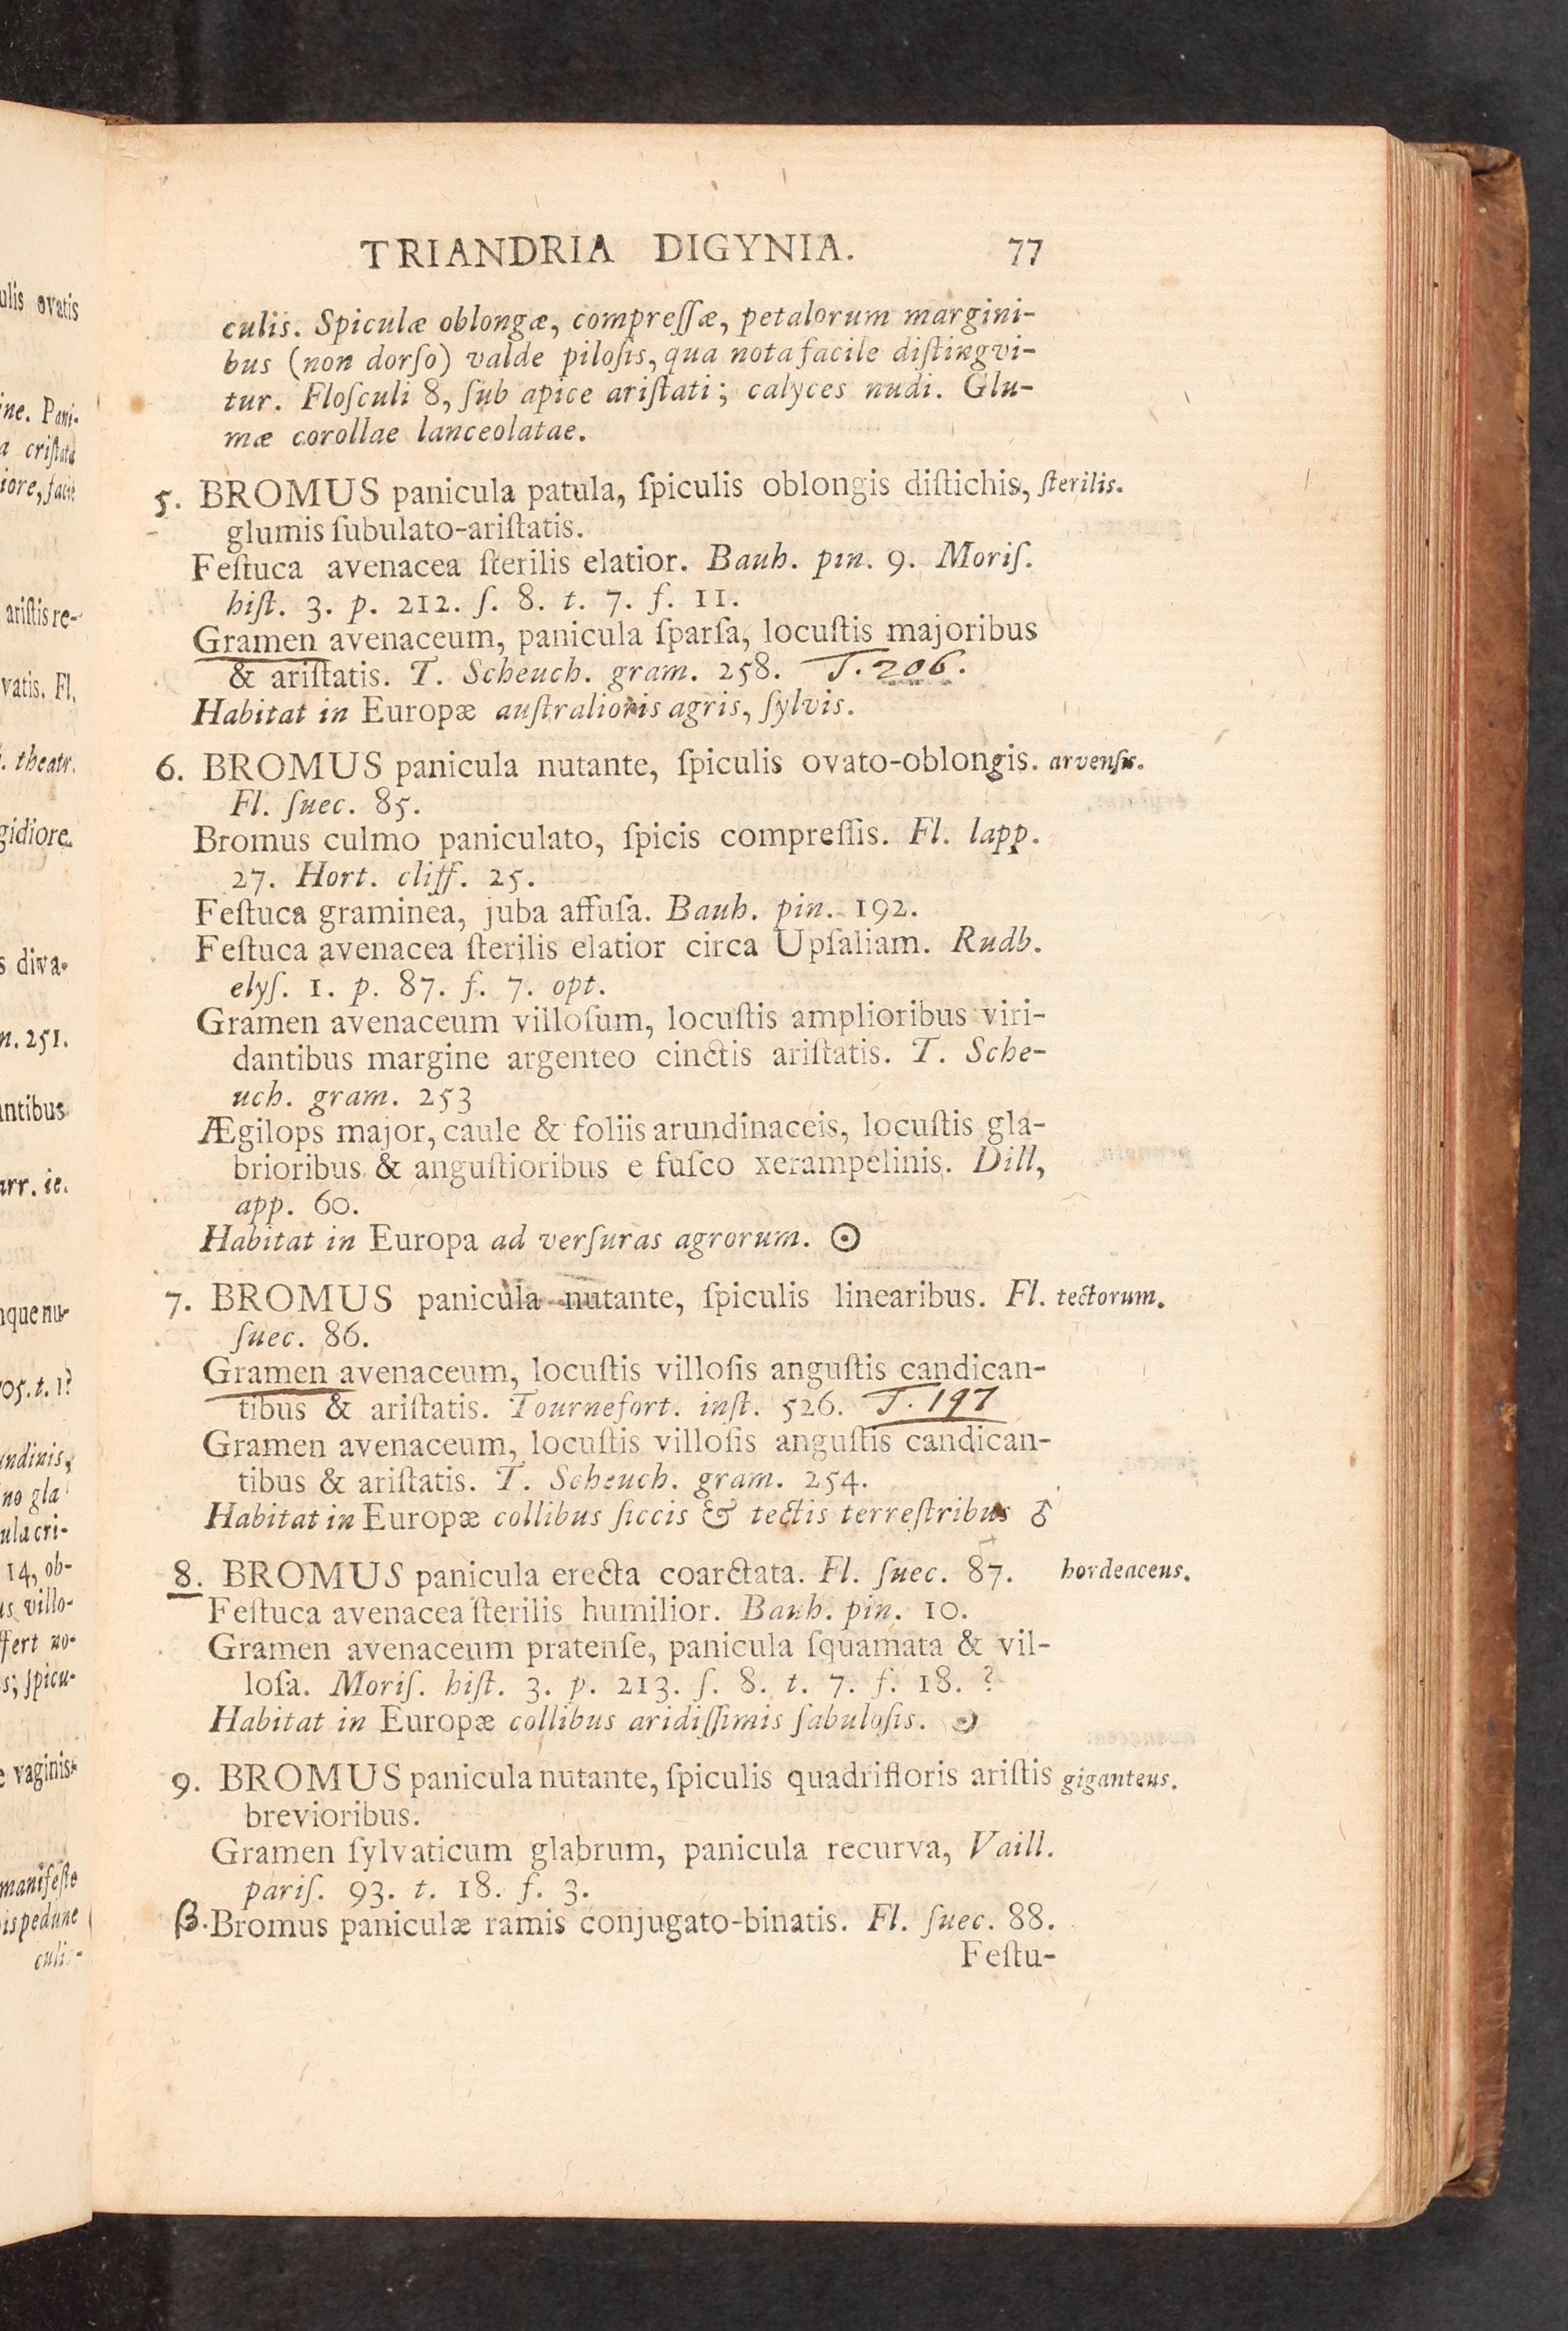 TRIANDRIA DIGYNIA. 77
culis. Spiculæ oblongæ, compreſſæ, petalorum margini-
bus (non dorſo) valde piloſis, qua nota facile diſtingvi-
tur. Floſculi 8, ſub apice ariſtati; calyces nudi. Glu-
mæ corollae lanceolatae.
5. BROMUS panicula patula, ſpiculis oblongis diſtichis, ſterilis.
glumis ſubulato-ariſtatis.
Feſtuca avenacea ſterilis elatior. Bauh. pin. 9. Moriſ.
hiſt. 3. p. 212. ſ. 8. t. 7. f. 11.
Gramen avenaceum, panicula ſparſa, locuſtis majoribus
& ariſtatis. T. Scheuch. gram. 258. T. 206.
Habitat in Europæ auſtralioris agris, ſylvis.
6. BROMUS panicula nutante, ſpiculis ovato-oblongis. arvenſis.
Fl. ſuec. 85.
Bromus culmo paniculato, ſpicis compreſſis. Fl. lapp.
27. Hort. cliff. 25.
Feſtuca graminea, juba affuſa. Bauh. pin. 192.
Feſtuca avenacea ſterilis elatior circa Upſaliam. Rudb.
elyſ. 1. p. 87. f. 7. opt.
Gramen avenaceum villoſum, locuſtis amplioribus viri-
dantibus margine argenteo cinctis ariſtatis. T. Sche-
uch. gram. 253
Ægilops major, caule & foliis arundinaceis, locuſtis gla-
brioribus & anguſtioribus e fuſco xerampelinis. Dill,
app. 60.
Habitat in Europa ad verſuras agrorum. ☉
7. BROMUS panicula nutante, ſpiculis linearibus. Fl. tectorum.
ſuec. 86.
Gramen avenaceum, locuſtis villoſis anguſtis candican-
tibus & ariſtatis. Tournefort. inſt. 526. T. 197
Gramen avenaceum, locuſtis villoſis anguſtis candican-
tibus & ariſtatis. T. Scheuch. gram. 254.
Habitat in Europæ collibus ſiccis & tectis terreſtribus ♂
8. BROMUS panicula erecta coarctata. Fl. ſuec. 87. hordeaceus.
Feſtuca avenacea ſterilis humilior. Bauh. pin. 10.
Gramen avenaceum pratenſe, panicula ſquamata & vil-
loſa. Moriſ. hiſt. 3. p. 213. ſ. 8. t. 7. f. 18. ?
Habitat in Europæ collibus aridiſſimis ſabuloſis. ☉
9. BROMUS panicula nutante, ſpiculis quadrifloris ariſtis giganteus.
brevioribus.
Gramen ſylvaticum glabrum, panicula recurva, Vaill.
pariſ. 93. t. 18. f. 3.
β. Bromus paniculæ ramis conjugato-binatis. Fl. ſuec. 88.
Feſtu-